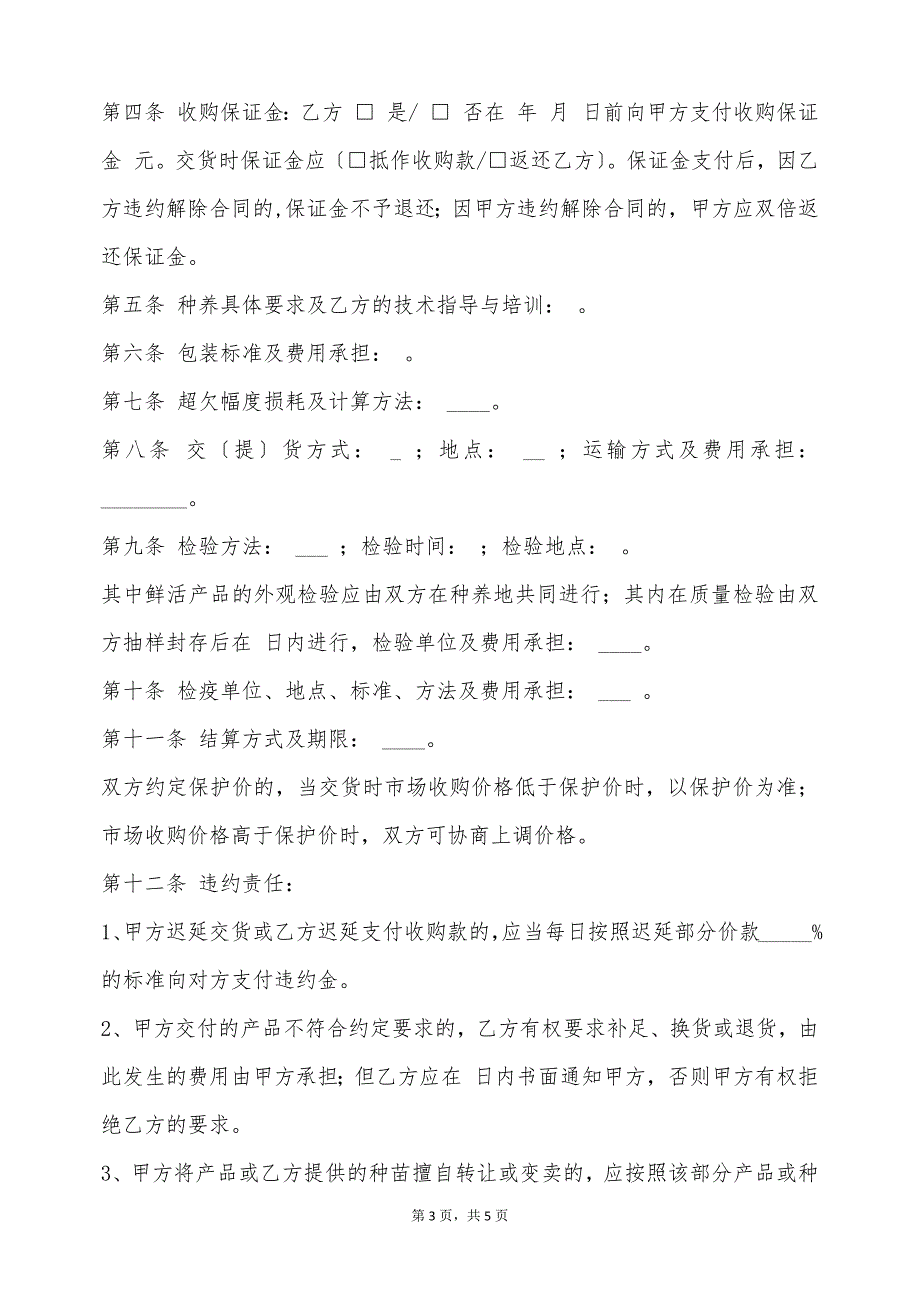 第四条 收购保证金：乙方 □ 是/ □ 否在 年 月 日前向甲方支付收购保证
金 元。交货时保证金应〔□抵作收购款/□返还乙方〕。保证金支付后，因乙
方违约解除合同的,保证金不予退还；因甲方违约解除合同的，甲方应双倍返
还保证金。
第五条 种养具体要求及乙方的技术指导与培训： 。
第六条 包装标准及费用承担： 。
第七条 超欠幅度损耗及计算方法： ____。
第八条 交〔提〕货方式： _ ；地点： __ ；运输方式及费用承担：
________。
第九条 检验方法： ___ ；检验时间： ；检验地点： 。
其中鲜活产品的外观检验应由双方在种养地共同进行；其内在质量检验由双
方抽样封存后在 日内进行，检验单位及费用承担： ____。
第十条 检疫单位、地点、标准、方法及费用承担： ___ 。
第十一条 结算方式及期限： ____。
双方约定保护价的，当交货时市场收购价格低于保护价时，以保护价为准；
市场收购价格高于保护价时，双方可协商上调价格。
第十二条 违约责任：
1、甲方迟延交货或乙方迟延支付收购款的,应当每日按照迟延部分价款_____%
的标准向对方支付违约金。
2、甲方交付的产品不符合约定要求的，乙方有权要求补足、换货或退货，由
此发生的费用由甲方承担；但乙方应在 日内书面通知甲方，否则甲方有权拒
绝乙方的要求。
3、甲方将产品或乙方提供的种苗擅自转让或变卖的，应按照该部分产品或种
第 3 页，共 5 页